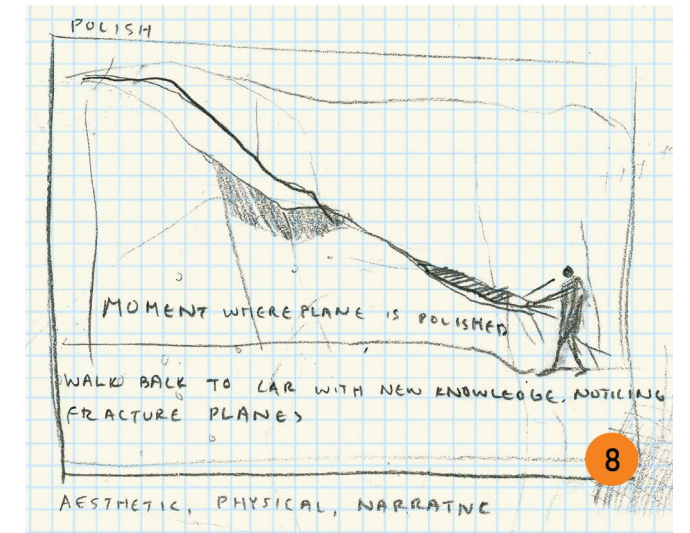 POLISH
MOMENT WHERE PLANE IS POLISHED
WALK BACK TO CAR WITH NEW KNOWLEDGE. NOTICING
FRACTURE PLANES
8
AESTHETIC, PHYSICAL, NARRATIVE